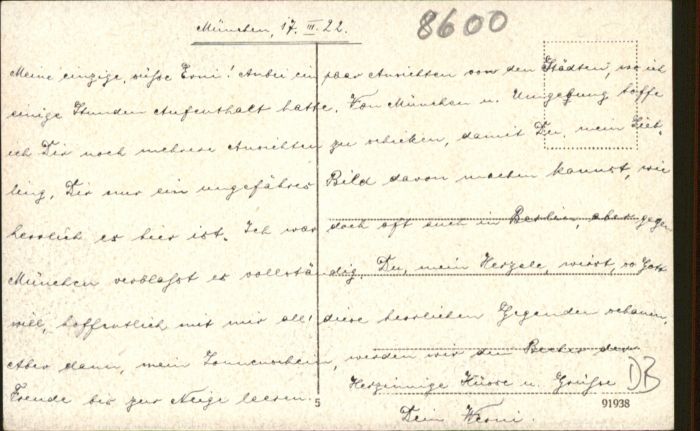 München, 17. III. 22.
8600
Meine einzige, süsse Erni! Anbei ein paar Ansichten von den Städten, wo ich
einige Stunden Aufenthalt hatte. Von München u. Umgebung hoffe
ich Dir noch mehrere Ansichten zu schicken, damit Du, mein Lieb-
ling, Dir nur ein ungefähres Bild davon machen kannst, wie
herrlich es hier ist. Ich war doch oft auch in Berlin, aber gegen
München verblasst es vollständig. Du, mein Herzele, wirst, so Gott
will, hoffentlich mit mir all' diese herrlichen Gegenden schauen,
Aber dann, mein Sonnenschein, werden wir den Becher der
Freude bis zur Neige leeren.
Herzinnige Küsse u. Grüsse
Dein
DB
5
91938